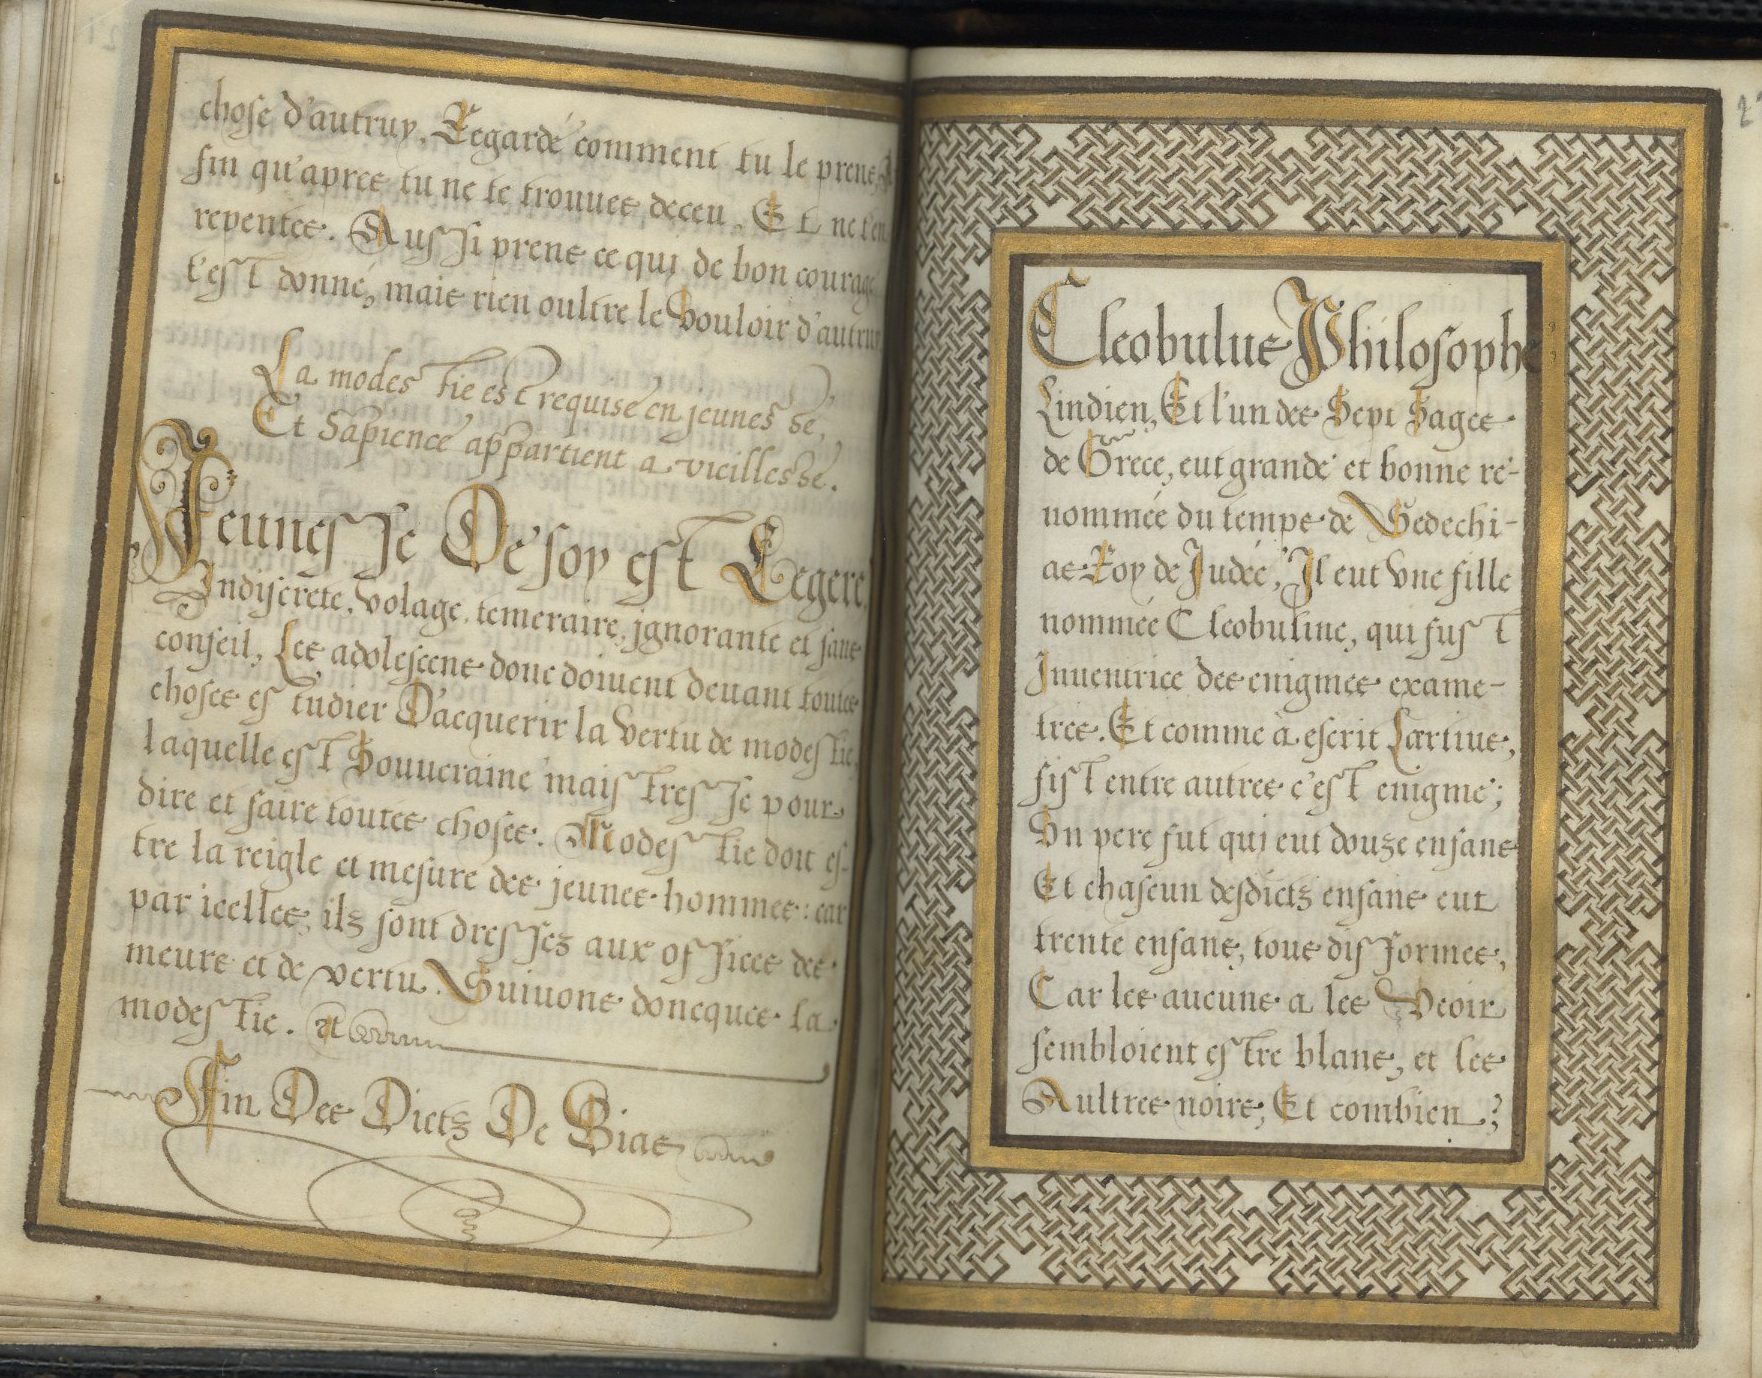 chose d'autruy, Regarde comment tu le prens, A
fin qu'apres tu ne te trouues deceu, Et ne t'en
repentes. Aussi prens ce qui de bon courage
t'est donné, mais rien oultre le vouloir d'autruy
La modestie est requise en jeunesse,
Et Sapience appartient a vieillesse.
Jeunesse De soy est Legere,
Indiscrete, volage, temeraire, ignorante et sans
conseil, Les adolescens donc doiuent deuant toutes
choses estudier D'acquerir la vertu de modestie,
laquelle est Souueraine maistresse pour
dire et faire toutes choses. Modestie doit es-
tre la reigle et mesure des jeunes hommes: car
par icelles, ilz sont dressez aux offices des
meurs et de vertu. Suiuons doncques la
modestie.
Fin Des Dictz De Bias
Cleobulus Philosophe,
Lindien, Et l'un des Sept Sages
de Grece, eut grande et bonne re-
nommée du temps de Sedechi-
as Roy de Judée, Il eut vne fille
nommée Cleobuline, qui fust
Inuentrice des enigmes exame-
tres. Et comme à escrit Lærtius,
fist entre autres c'est enigme;
Vn pere fut qui eut douze enfans
Et chascun desdictz enfans eut
trente enfans, tous difformes,
Car les aucuns a les Veoir
sembloient estre blans, et les
Aultres noirs, Et combien ;